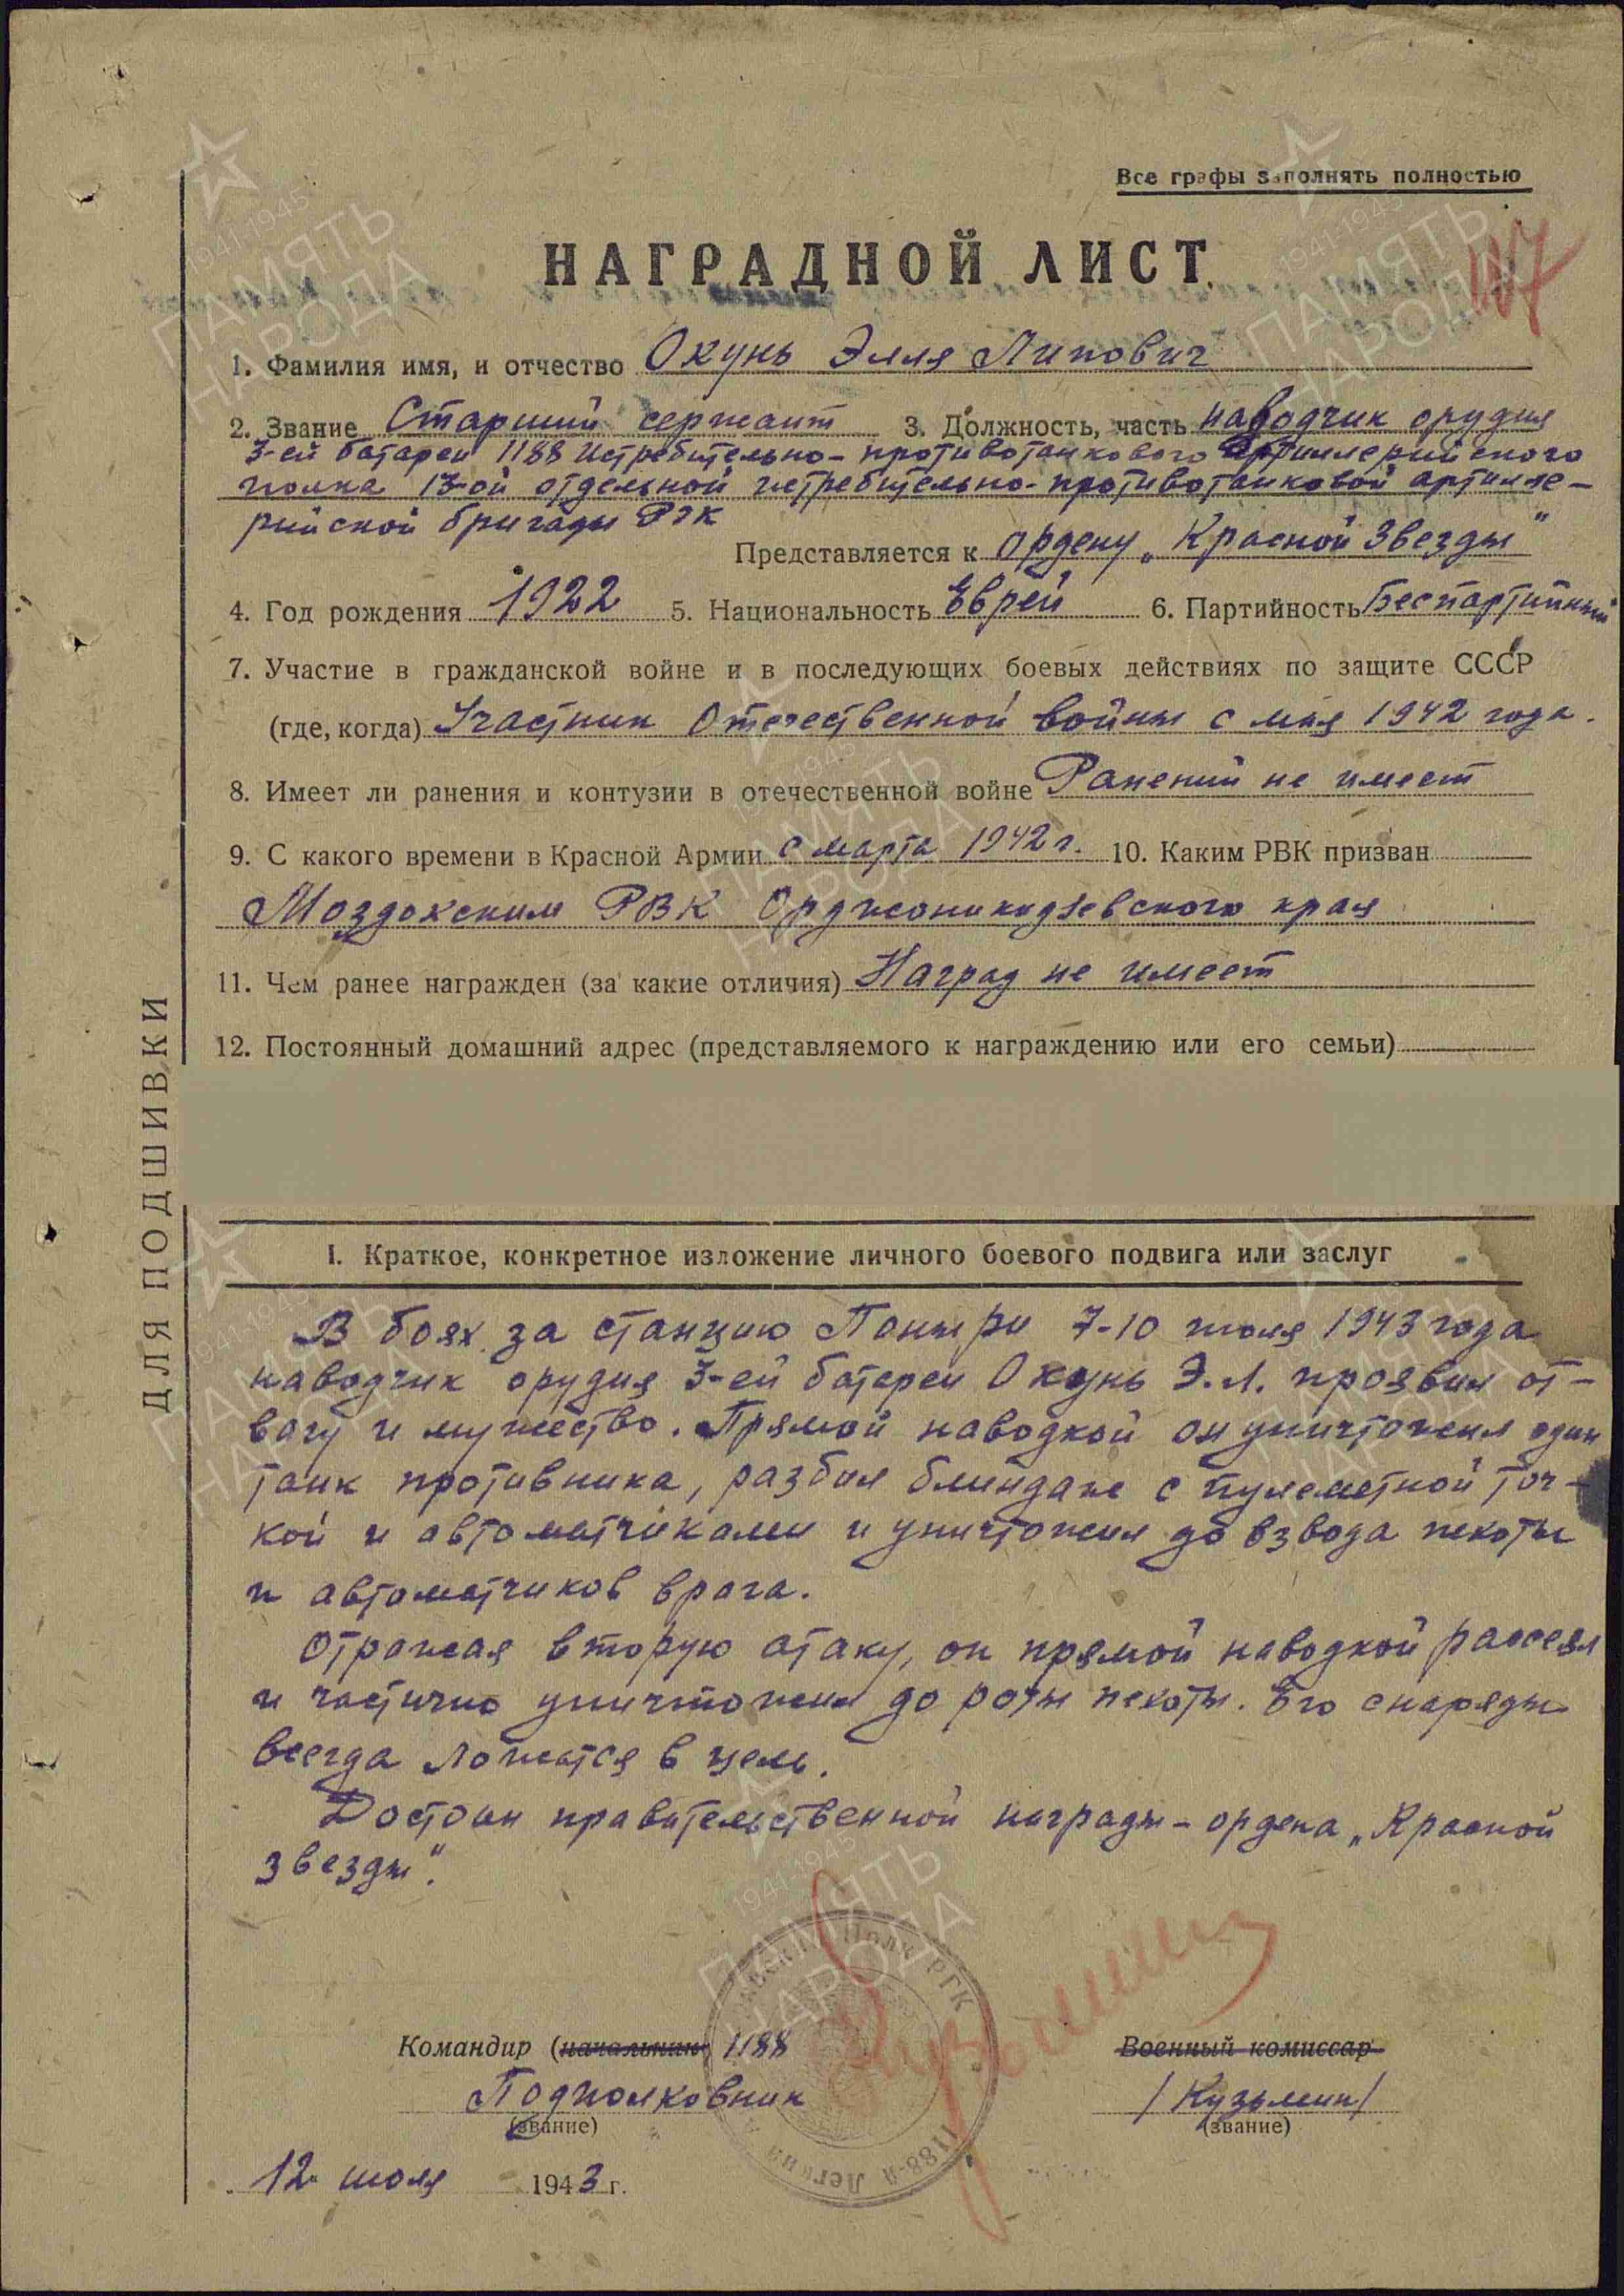 Все графы заполнять полностью
НАГРАДНОЙ ЛИСТ
1. Фамилия имя, и отчество Окунь Элля Липович
2. Звание Старший сержант 3. Должность, часть наводчик орудия
3-ей батареи 1188 истребительно-противотанкового артиллерийского
полка 13-ой отдельной истребительно-противотанковой артилле-
рийской бригады РГК
Представляется к ордену „Красной Звезды"
4. Год рождения 1922 5. Национальность Еврей 6. Партийность Беспартийный
7. Участие в гражданской войне и в последующих боевых действиях по защите СССР
(где, когда) Участник Отечественной войны с мая 1942 года.
8. Имеет ли ранения и контузии в отечественной войне Ранений не имеет
9. С какого времени в Красной Армии с марта 1942 г. 10. Каким РВК призван
Моздокским РВК Орджоникидзевского края
11. Чем ранее награжден (за какие отличия) Наград не имеет
12. Постоянный домашний адрес (представляемого к награждению или его семьи)
ДЛЯ ПОДШИВКИ
I. Краткое, конкретное изложение личного боевого подвига или заслуг
В боях за станцию Поныри 7-10 июля 1943 года
наводчик орудия 3-ей батареи Окунь Э.Л. проявил от-
вагу и мужество. Прямой наводкой он уничтожил один
танк противника, разбил блиндаж с пулеметной точ-
кой и автоматчиками и уничтожил до взвода пехоты
и автоматчиков врага.
Отражая вторую атаку, он прямой наводкой рассеял
и частично уничтожил до роты пехоты. Его снаряды
всегда ложатся в цель.
Достоин правительственной награды - ордена „Красной
звезды".
Командир (начальник) 1188 Военный комиссар
Подполковник /Кузьмин/
(звание) (звание)
12 июля 1943 г.
Кузьмин
Полк РГК
1188-й Легкий
1941-1945
ПАМЯТЬ
НАРОДА